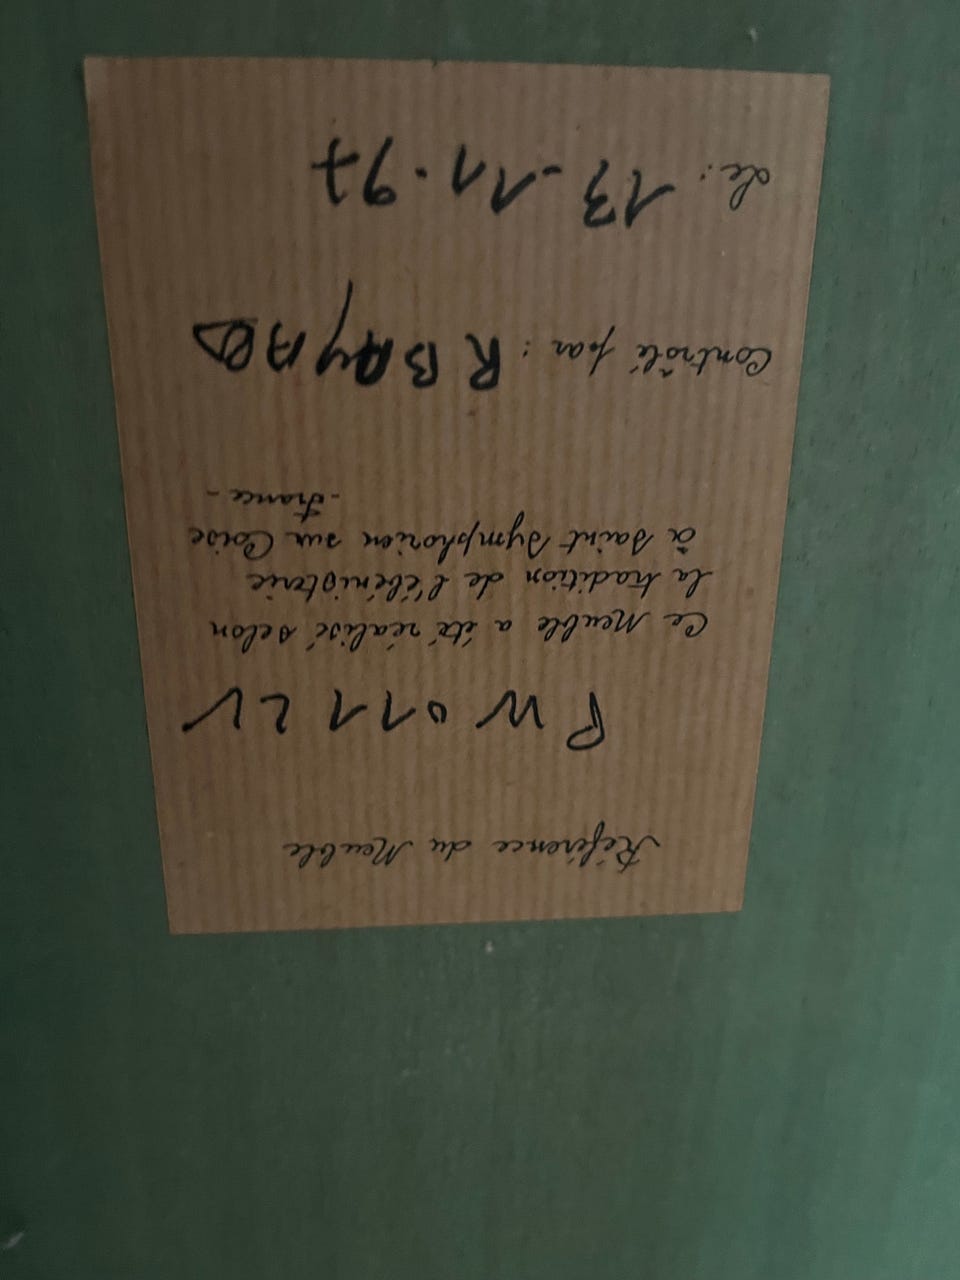 Référence du Meuble
PW 011 LV
Ce Meuble a été réalisé selon
la tradition de l'ébénisterie
à Saint Symphorien sur Coise
- France -
Contrôlé par : R BAYARD
Le : 13-11-97